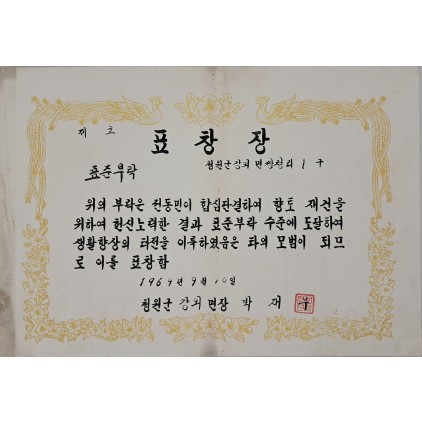 제 호
표창장
청원군 강외면 쌍청리 1구
표준부락
위의 부락은 전동민이 합심단결하여 향토 재건을
위하여 헌신노력한 결과 표준부락 수준에 도달하여
생활향상의 터전을 이룩하였음은 타의 모범이 되므
로 이를 표창함
1964년 9월 10일
청원군 강외면장 박 재